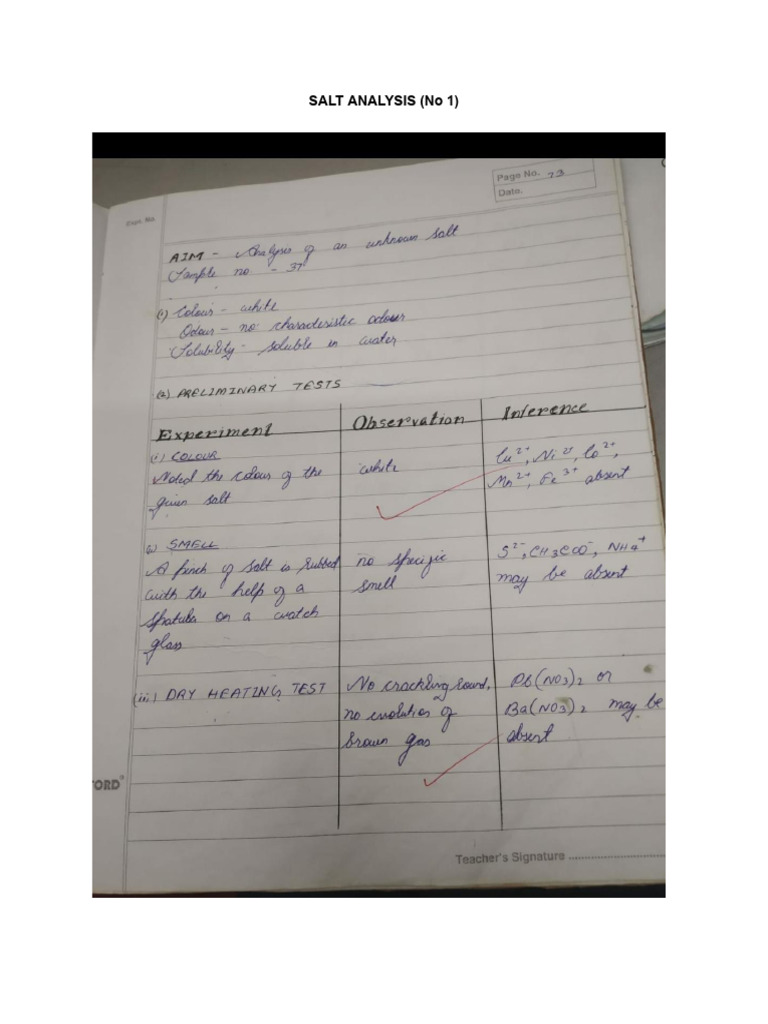 SALT ANALYSIS (No 1)
Page No. 23
Date.
Expt. No.
AIM - Analysis of an unknown salt
Sample no. - 37
(1) Colour - white
Odour - no characteristic odour
Solubility - soluble in water
(2) PRELIMINARY TESTS
Experiment Observation Inference
(i) COLOUR
Noted the colour of the given salt
white
Cu²⁺, Ni²⁺, Co²⁺,
Mn²⁺, Fe³⁺ absent
SMELL
A pinch of salt is rubbed
with the help of a
spatula on a watch
glass
no specific
smell
S²⁻, CH3COO⁻, NH4⁺
may be absent
(iii) DRY HEATING TEST
No crackling sound,
no evolution of
brown gas
Pb(NO3)2 or
Ba(NO3)2 may be
absent
ORD
Teacher's Signature